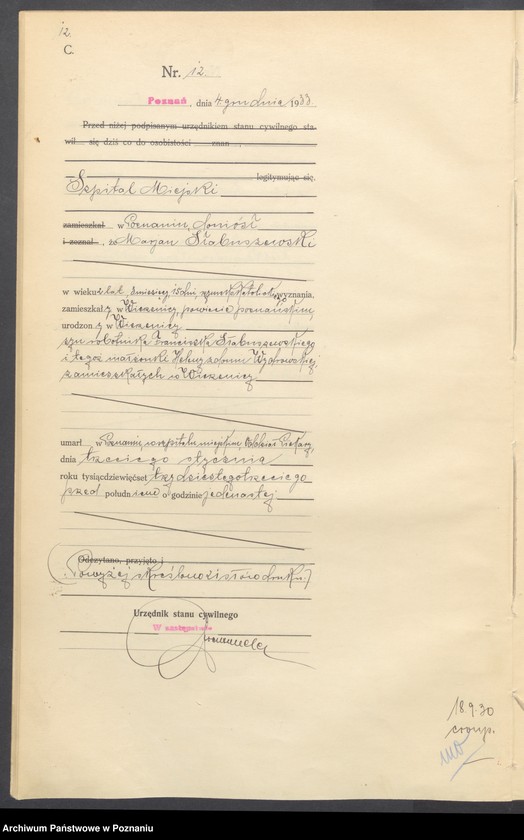 12
C.
Nr. 12.
Poznań, dnia 4. 1933.
Przed niżej podpisanym urzędnikiem stanu cywilnego sta-
wił się dziś co do osobistości znan
legitymując się
Szpital Miejski
zamieszkał w Poznaniu, doniósł
i zeznał, że Maryan Słabuszewski
w wieku 2 lat, 3 miesięcy, 15 dni, wyznania,
zamieszkał.y w Wierzenicy, powiecie poznańskim
urodzon.y w Wierzenicy
syn robotnika Franciszka Słabuszewskiego
i tegoż małżonki z domu
zamieszkałych w Wierzenicy
umarł w Poznaniu, w szpitalu miejskim,
dnia trzeciego stycznia
roku tysiącdziewięćset trzydziestegotrzeciego
przed południem o godzinie jedenastej
Odczytano, przyjęto i
(Powyżej skreślono druku.)
Urzędnik stanu cywilnego
W zastępstwie
18.9.30
croup.
Archiwum Państwowe w Poznaniu